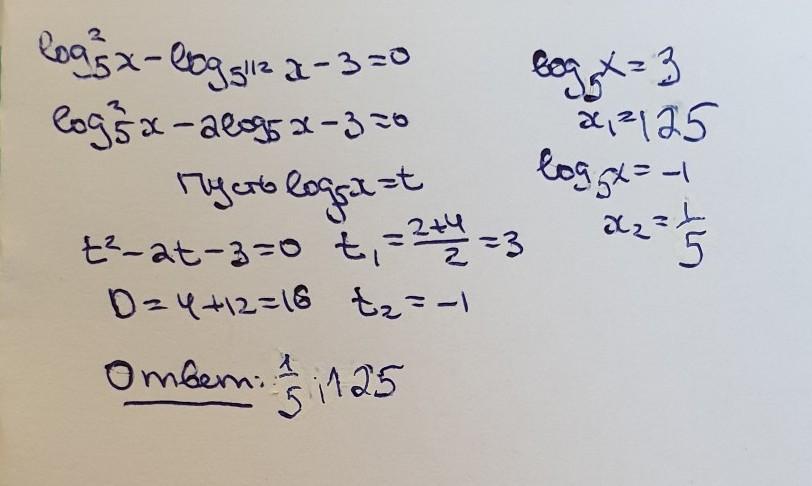 log₅²x − log₅1/2 x − 3 = 0
log₅²x − 2log₅x − 3 = 0
Пусть log₅x = t
t² − 2t − 3 = 0 t₁ = (2+4)/2 = 3
D = 4 + 12 = 16 t₂ = −1
log₅x = 3
x₁ = 125
log₅x = −1
x₂ = 1/5
Ответ: 1/5; 125